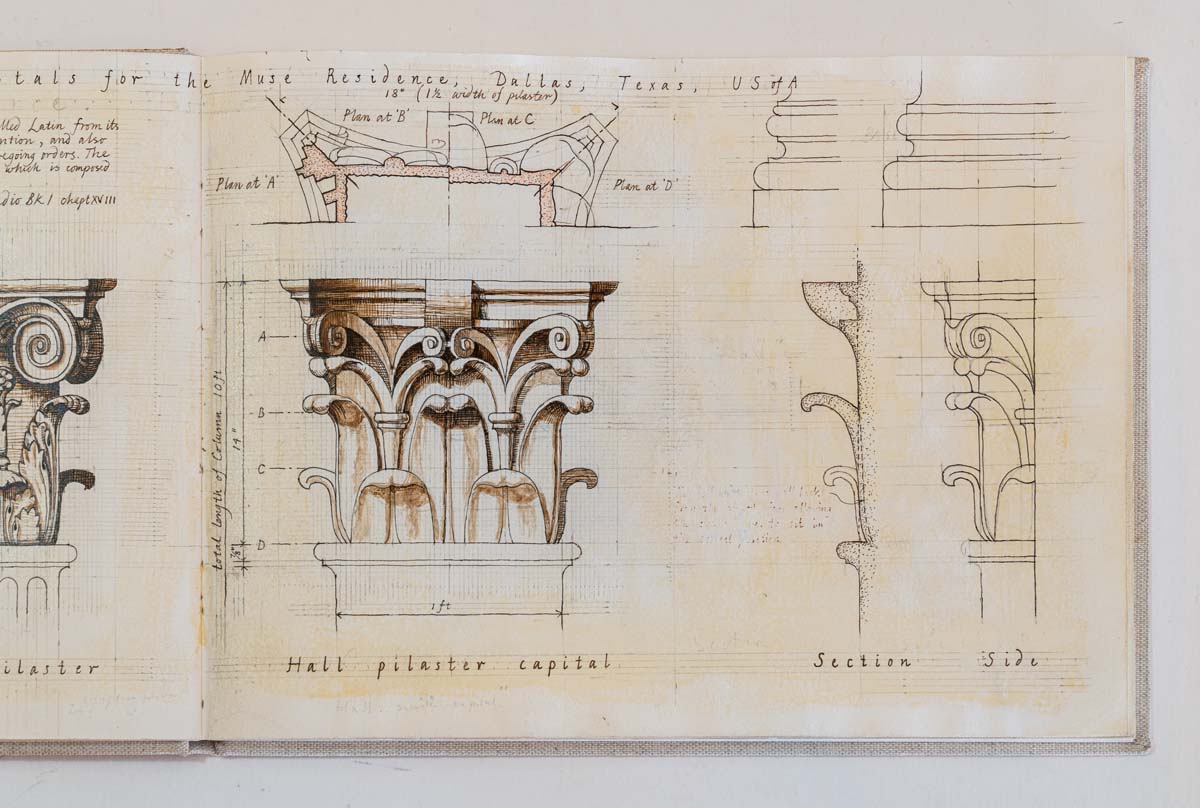 tals for the Muse Residence, Dallas, Texas, US of A
lled Latin from its
ntion, and also
egoing orders. The
which is composed
dio BK 1 chapt XVIII
18" (1½ width of pilaster)
Plan at 'B'
Plan at C
Plan at 'A'
Plan at 'D'
A
B
C
D
total length of Column 10ft
14"
⅞"
1 ft
ilaster
Hall pilaster capital
Section
Side